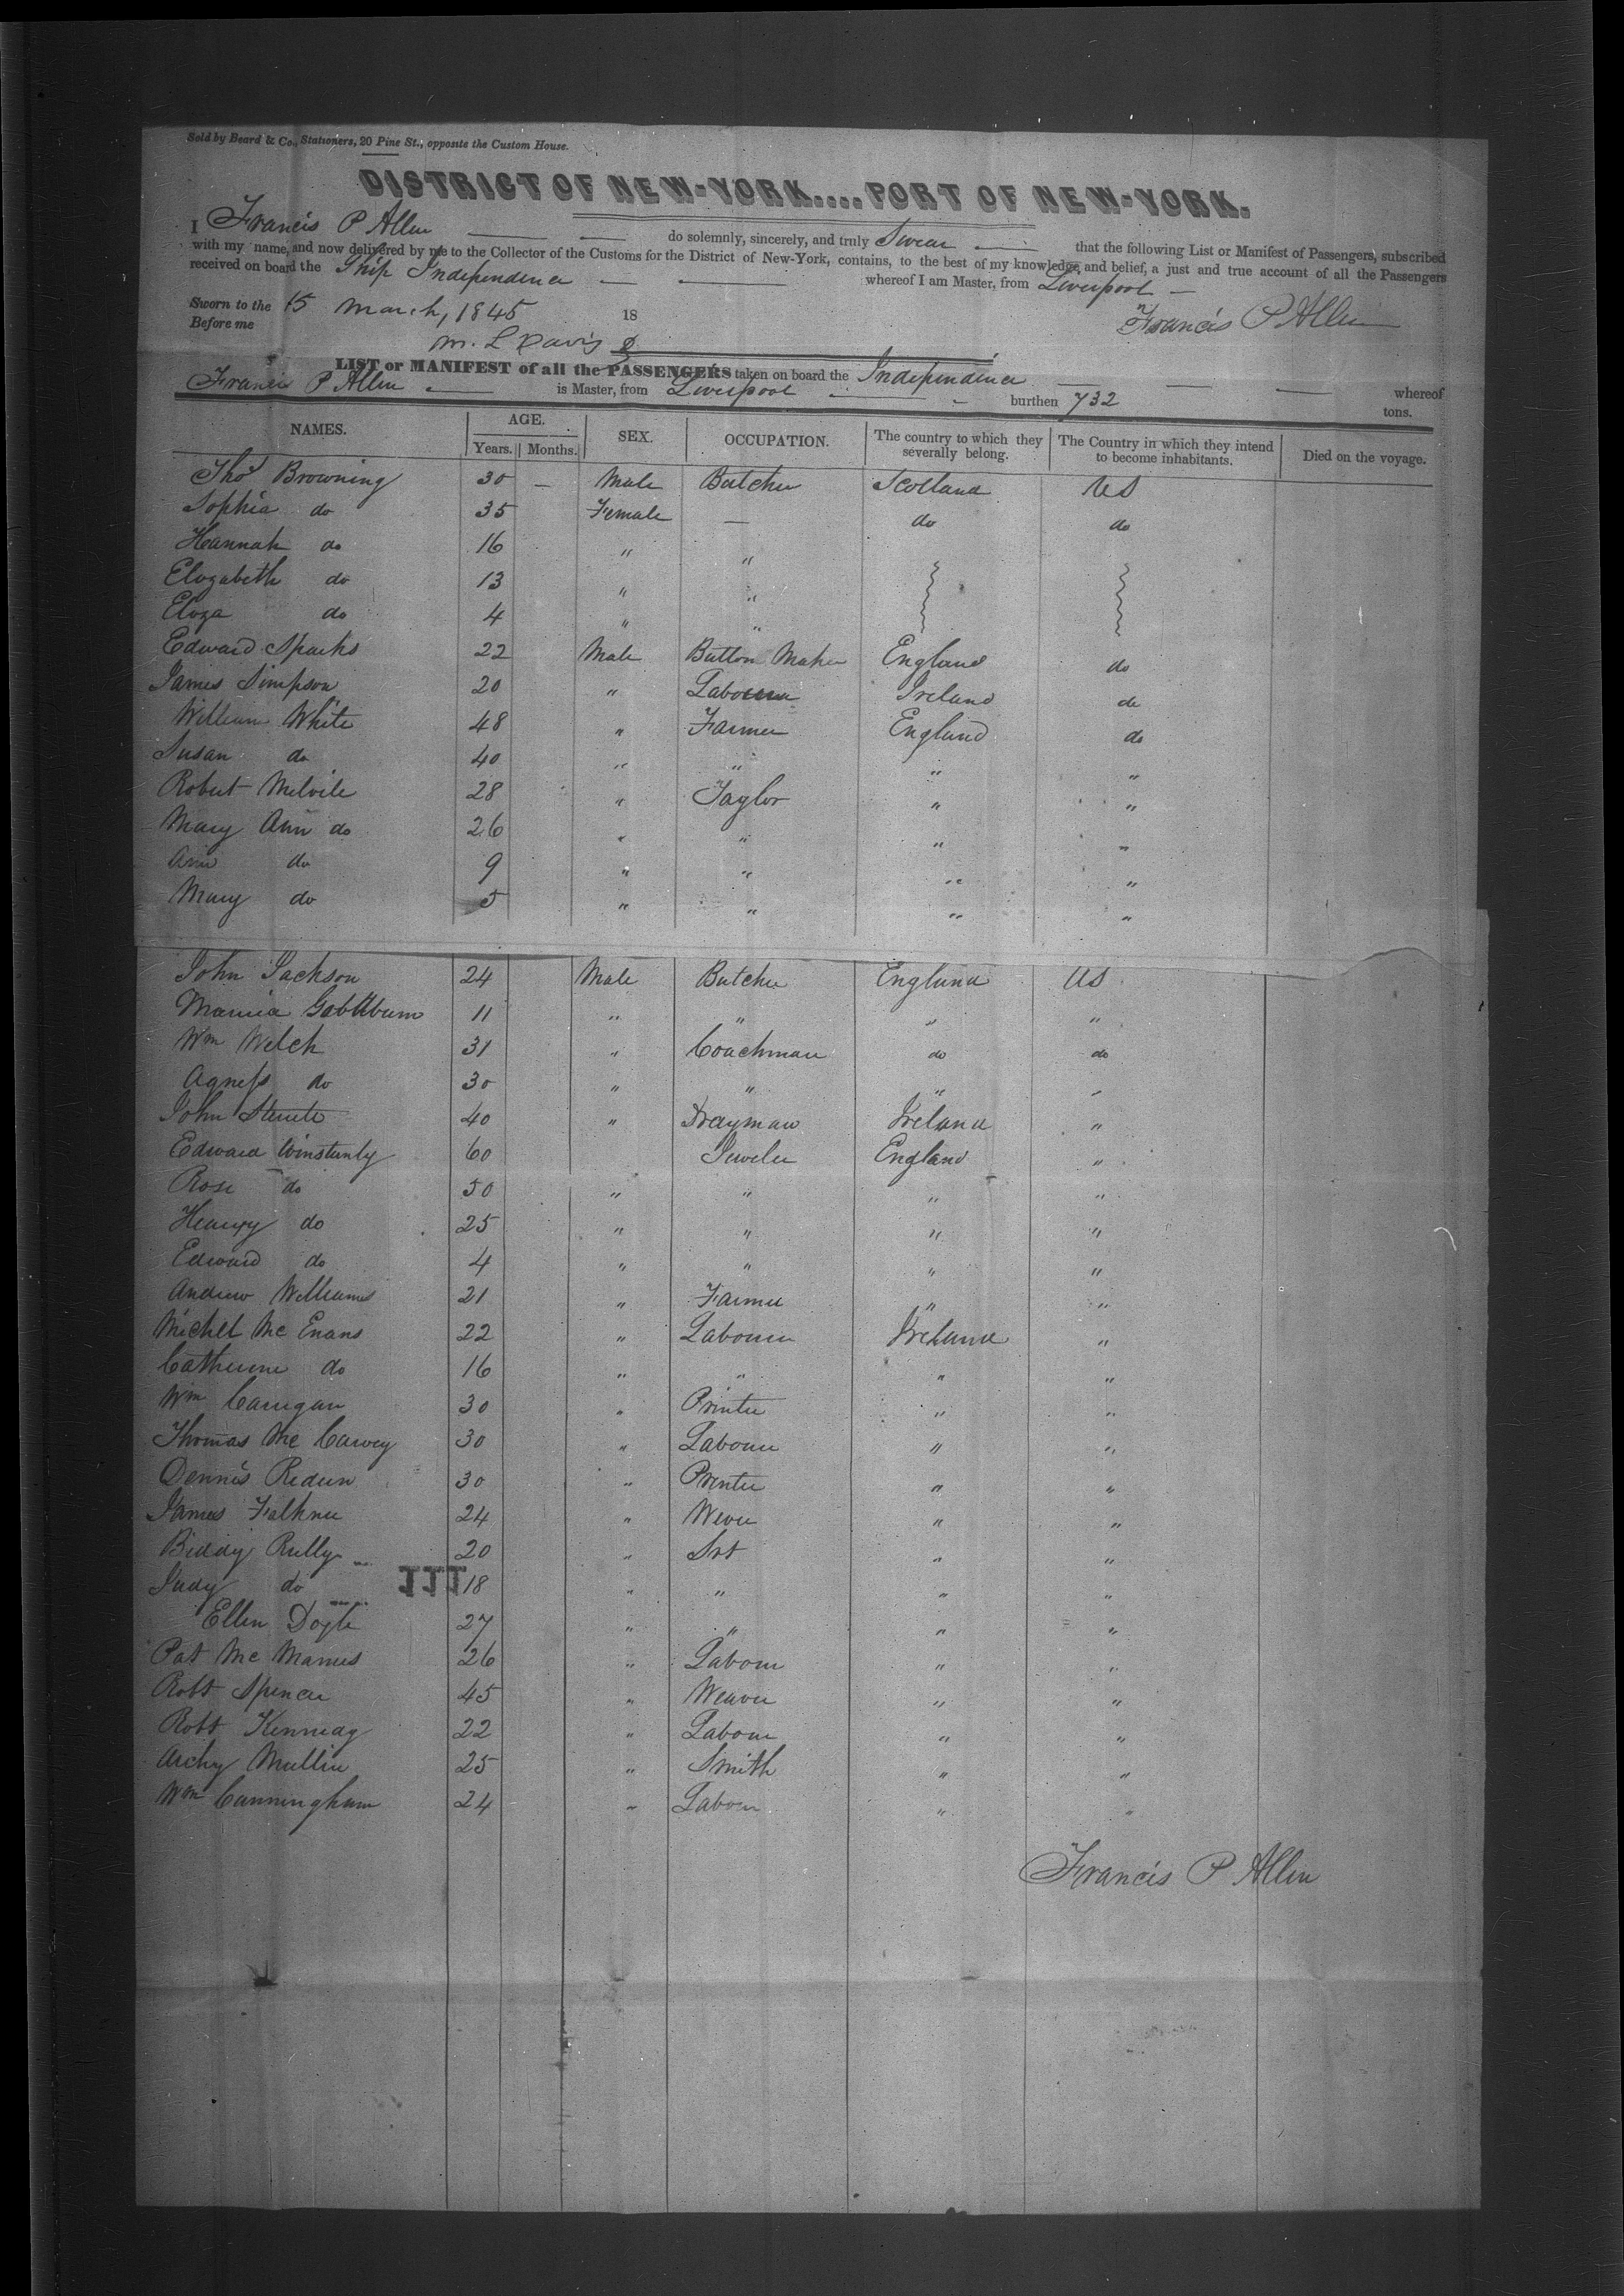 Sold by Beard & Co., Stationers, 20 Pine St., opposite the Custom House.
DISTRICT OF NEW-YORK....PORT OF NEW-YORK.
I Francis P Allen do solemnly, sincerely, and truly Swear that the following List or Manifest of Passengers, subscribed
with my name, and now delivered by me to the Collector of the Customs for the District of New-York, contains, to the best of my knowledge and belief, a just and true account of all the Passengers
received on board the Ship Independence whereof I am Master, from Liverpool
Sworn to the 15 March, 1845 18 Francis P Allen
Before me
M. L Davis
LIST or MANIFEST of all the PASSENGERS taken on board the Independence whereof
Francis P Allen is Master, from Liverpool burthen 732 tons.
NAMES. AGE. Years. Months. SEX. OCCUPATION. The country to which they severally belong. The Country in which they intend to become inhabitants. Died on the voyage.
Thos Browning 30 — Male Butcher Scotland US
Sophia do 35 Female — do do
Hannah do 16 " "
Elizabeth do 13 " "
Eliza do 4 " "
Edward Sparks 22 Male Button Maker England do
James Simpson 20 " Labourer Ireland do
William White 48 " Farmer England do
Susan do 40 " " " "
Robert Melvile 28 " Taylor " "
Mary Ann do 26 " " " "
Ann do 9 " " " "
Mary do 5 " " " "
John Jackson 24 Male Butcher England US
11 " " " "
Wm Welch 31 " Coachman do do
Agness do 30 " " " "
John 40 " Drayman Ireland "
Edward Winstanly 60 Jeweler England "
Rose do 50 " " " "
Henry do 25 " " " "
Edward do 4 " " " "
Andrew Williams 21 " Farmer " "
Michel Mc Enans 22 " Labourer Ireland "
Catherine do 16 " " " "
Wm Carrigan 30 " Printer " "
Thomas Mc Carvey 30 " Labourer " "
Dennis 30 " Printer " "
James Falkner 24 " Wever " "
Biddy Reilly 20 " Srt " "
Judy do 18 " " " "
111
Ellen Doyle 27 " " " "
Pat Mc Manus 26 " Labour " "
Robt Spencer 45 " Weaver " "
Robt Kennedy 22 " Labour " "
Archy Mullin 25 " Smith " "
Wm Cunningham 24 " Labour " "
Francis P Allen